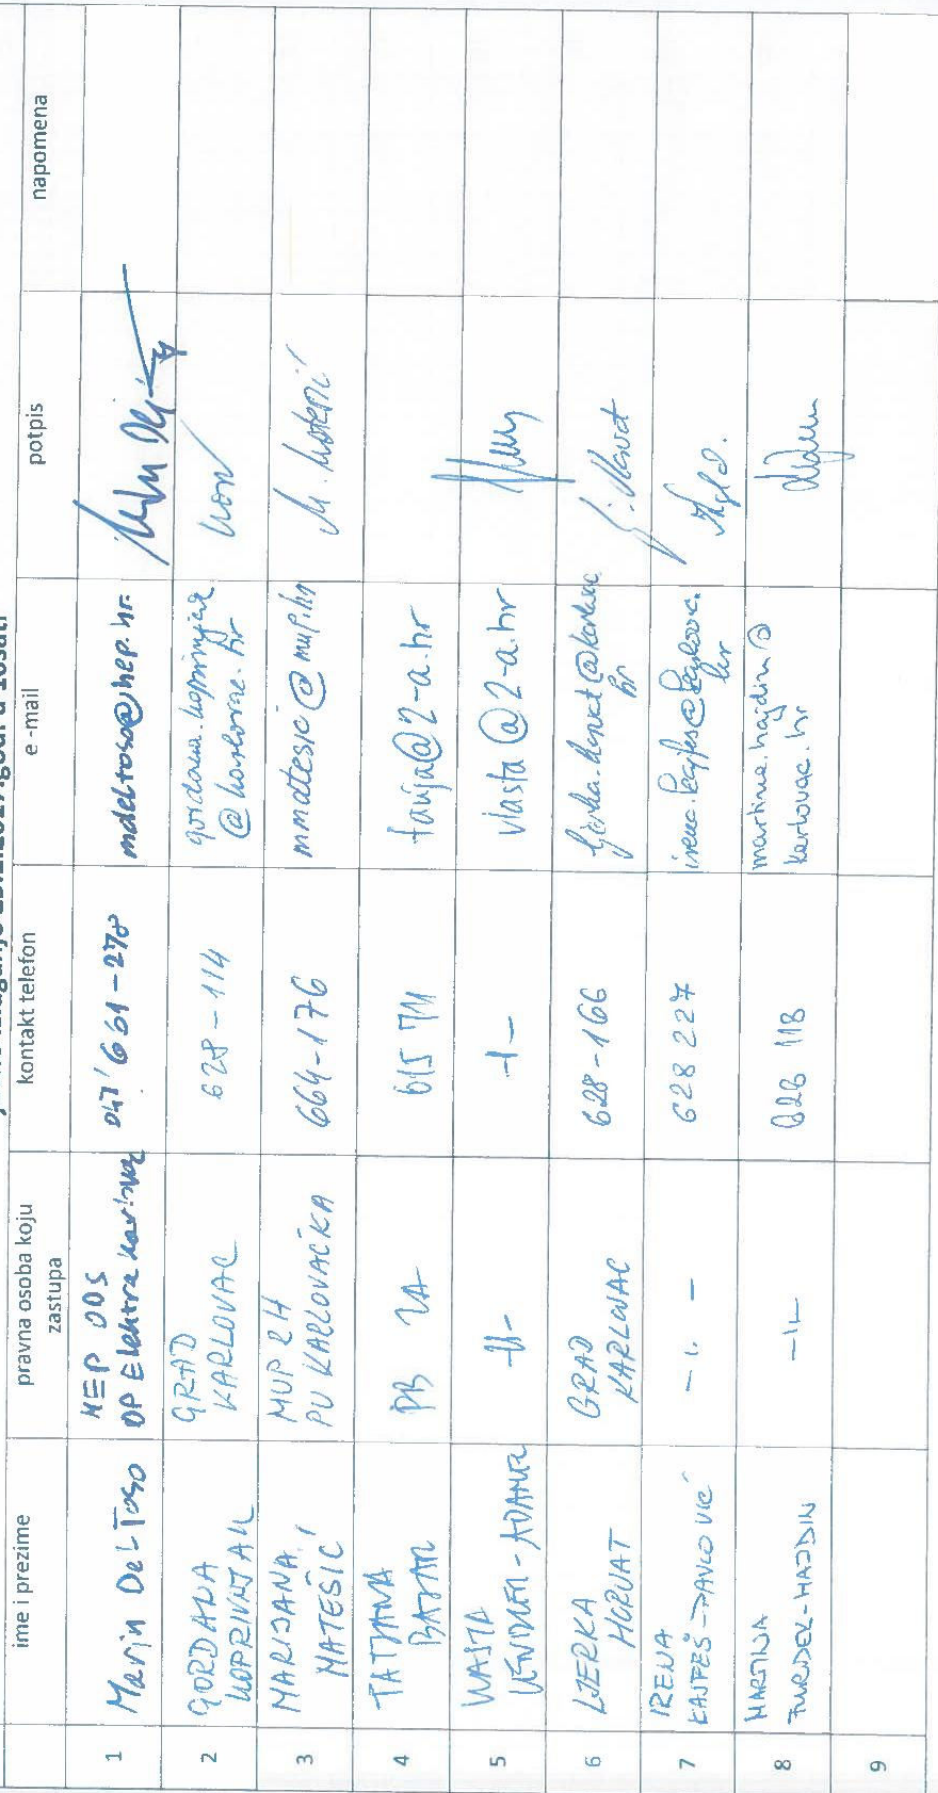 ime i prezime
pravna osoba koju
zastupa
kontakt telefon
e -mail
potpis
napomena
1
Marin Del Toso
HEP ODS
DP Elektra Karlovac
047/661-278
mdeltoso@hep.hr.
2
GORDANA
KOPRIVNJAK
GRAD
KARLOVAC
628-114
gordana.koprivnjak
@karlovac.hr
3
MARIJANA
MATEŠIĆ
MUP RH
PU KARLOVAČKA
664-176
mmatesic@mup.hr
M. Matešić
4
TATJANA
BASTAR
PB 2A
615 711
tanja@2-a.hr
5
VLASTA
-||-
-||-
vlasta@2-a.hr
6
LJERKA
HORVAT
GRAD
KARLOVAC
628-166
ljerka.horvat@karlovac.
hr
Lj. Horvat
7
IRENA
KAJFEŠ-PAVLOVIĆ
-||-
628 227
irena.kajfes@karlovac.
hr
8
MARTINA
FURDEK-HAJDIN
-||-
628 118
martina.hajdin@
karlovac.hr
9